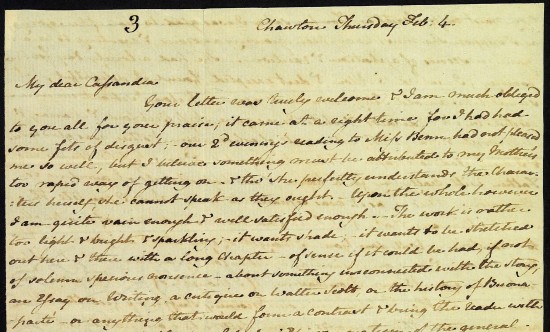 3
Chawton Thursday Feb: 4.
My dear Cassandra
Your letter was truely welcome & I am much obliged
to you all for your praise; it came at a right time, for I had had
some fits of disgust; our 2d evening's reading to Miss Benn had not pleased
me so well, but I believe something must be attributed to my Mother's
too rapid way of getting on - & tho' she perfectly understands the Charac-
-ters herself, she cannot speak as they ought. - Upon the whole however
I am quite vain enough & well satisfied enough. - The work is rather
too light & bright & sparkling; - it wants shade; - it wants to be stretched
out here & there with a long Chapter - of sense if it could be had, if not
of solemn specious nonsense - about something unconnected with the story;
an Essay on Writing, a critique on Walter Scott, or the history of Buona-
-parte - or anything that would form a contrast & bring the reader with
of the general